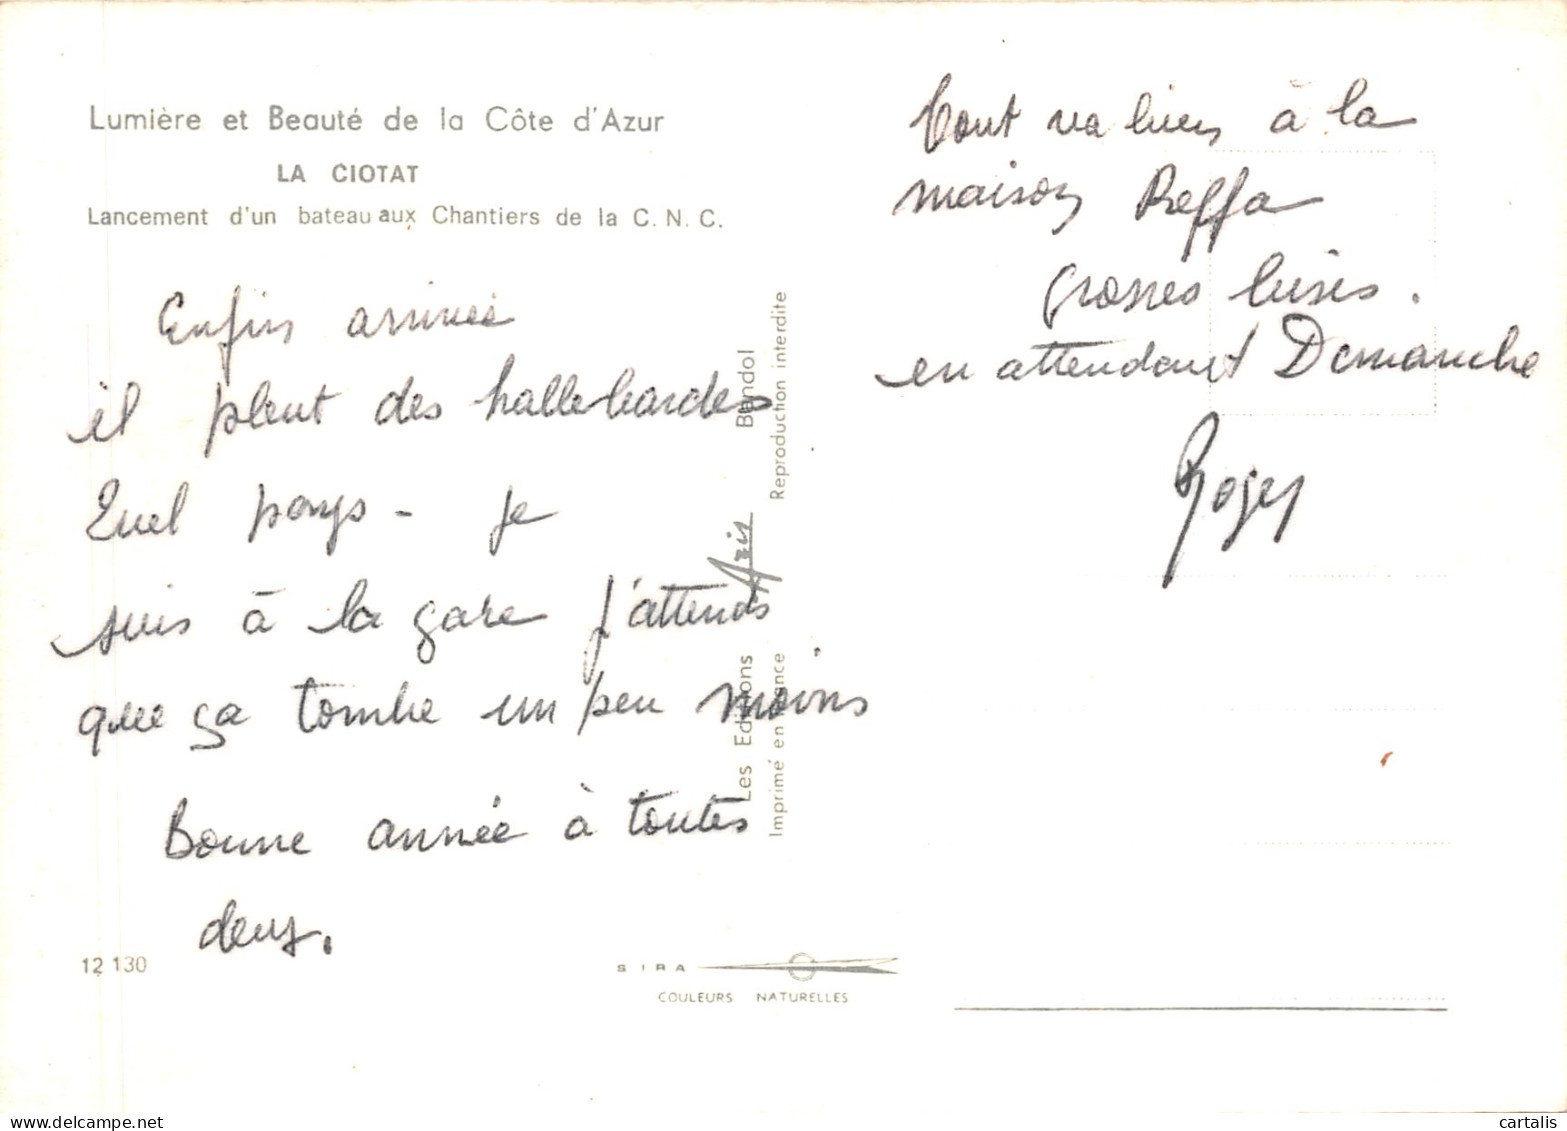 Lumière et Beauté de la Côte d'Azur
LA CIOTAT
Lancement d'un bateau aux Chantiers de la C. N. C.
Enfin arrivée
il pleut des hallebardes
Quel pays - je
suis à la gare j'attends
que ça tombe un peu moins
Bonne année à toutes
deux.
12 130
Les Editions Aris Bandol
Imprimé en France Reproduction interdite
SIRA
COULEURS NATURELLES
Tout va bien à la
maison Reffa
grosses bises.
en attendant Demanche
Roger
www.delcampe.net
cartalis